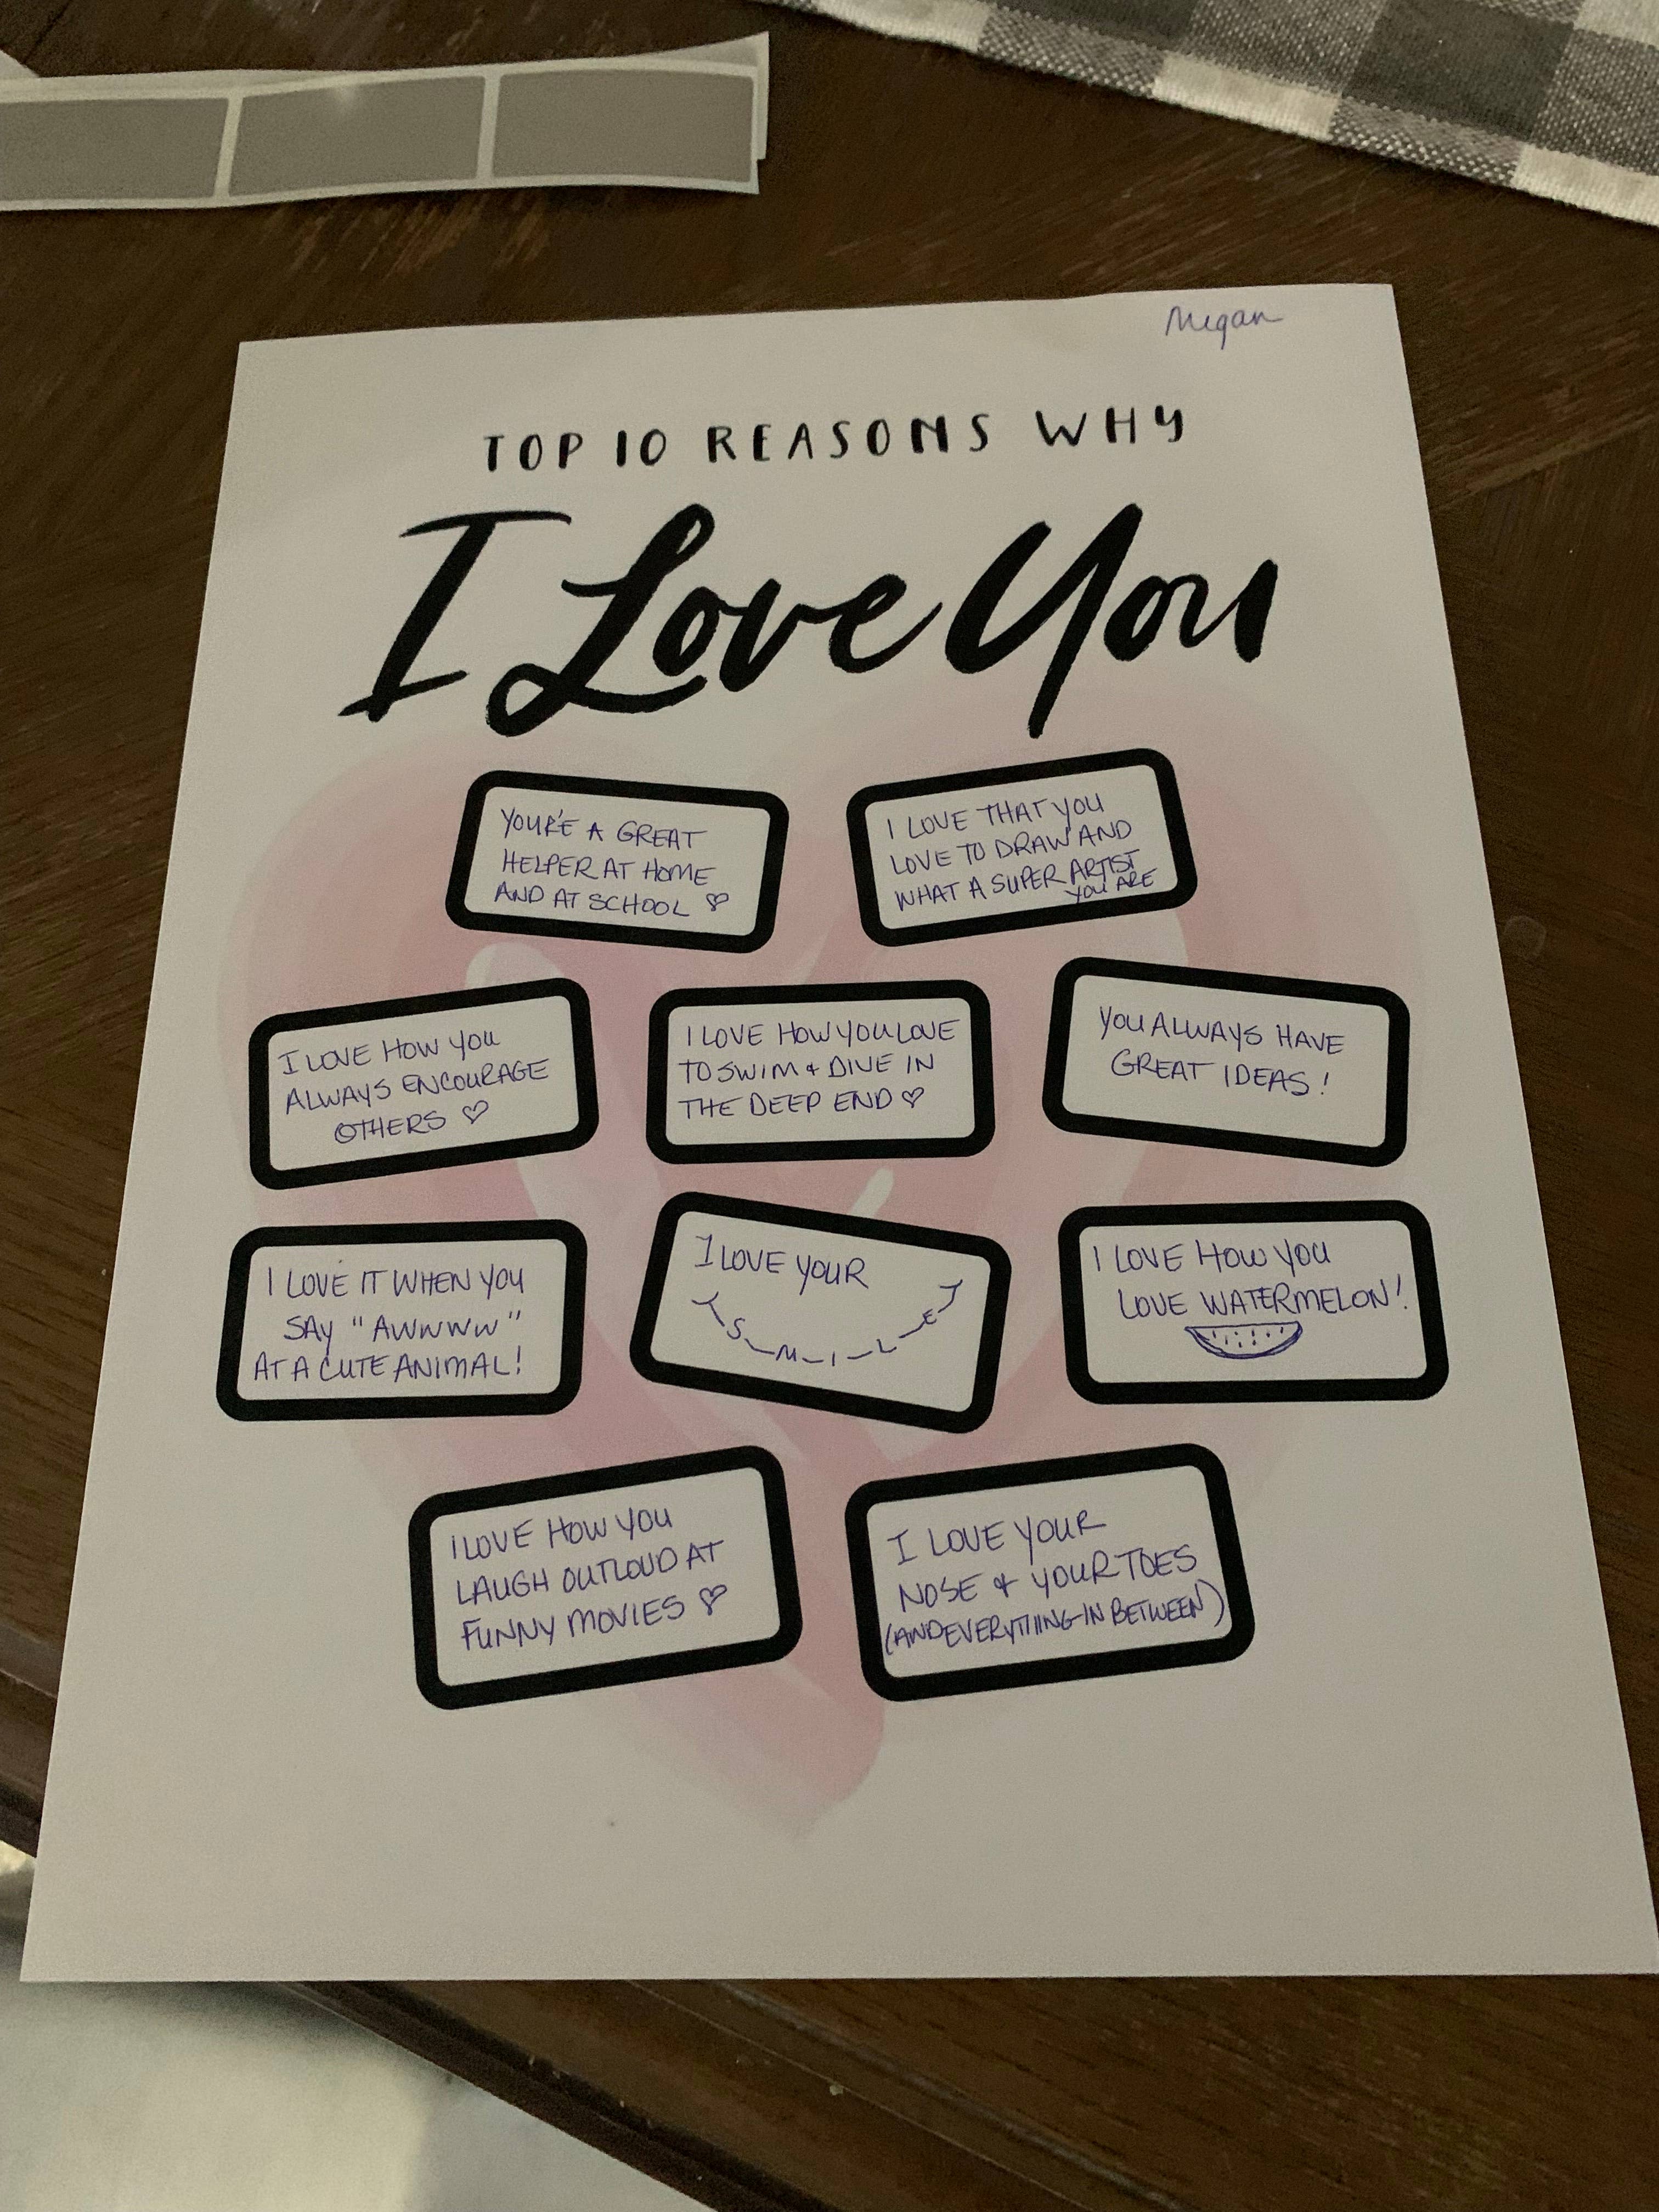 Megan
TOP 10 REASONS WHY
I Love You
YOUR'E A GREAT
HELPER AT HOME
AND AT SCHOOL ♡
I LOVE THAT YOU
LOVE TO DRAW AND
WHAT A SUPER ARTIST
YOU ARE
I LOVE HOW YOU
ALWAYS ENCOURAGE
OTHERS ♡
I LOVE HOW YOU LOVE
TO SWIM & DIVE IN
THE DEEP END ♡
YOU ALWAYS HAVE
GREAT IDEAS!
I LOVE IT WHEN YOU
SAY "AWWWW"
AT A CUTE ANIMAL!
I LOVE YOUR
SMILE
I LOVE HOW YOU
LOVE WATERMELON!
I LOVE HOW YOU
LAUGH OUTLOUD AT
FUNNY MOVIES ♡
I LOVE YOUR
NOSE & YOUR TOES
(AND EVERYTHING IN BETWEEN)